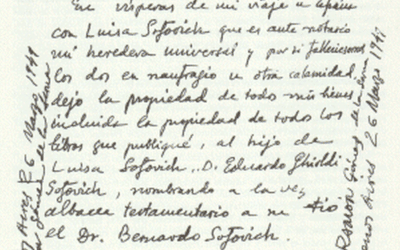 En vísperas de mi viaje a España
con Luisa Sofovich que es ante notario
mi heredera universal y por si falleciesemos
los dos en naufragio u otra calamidad,
dejo la propiedad de todos mis bienes
incluida la propiedad de todos los
libros que publiqué, al hijo de
Luisa Sofovich, D. Eduardo Ghioldi
Sofovich, nombrando a la vez
albacea testamentario a su tío
el Dr. Bernardo Sofovich.
Aires 26 Marzo 1949
Gómez de la Serna
Ramón Gómez de la Serna
Buenos Aires 26 Marzo 1949